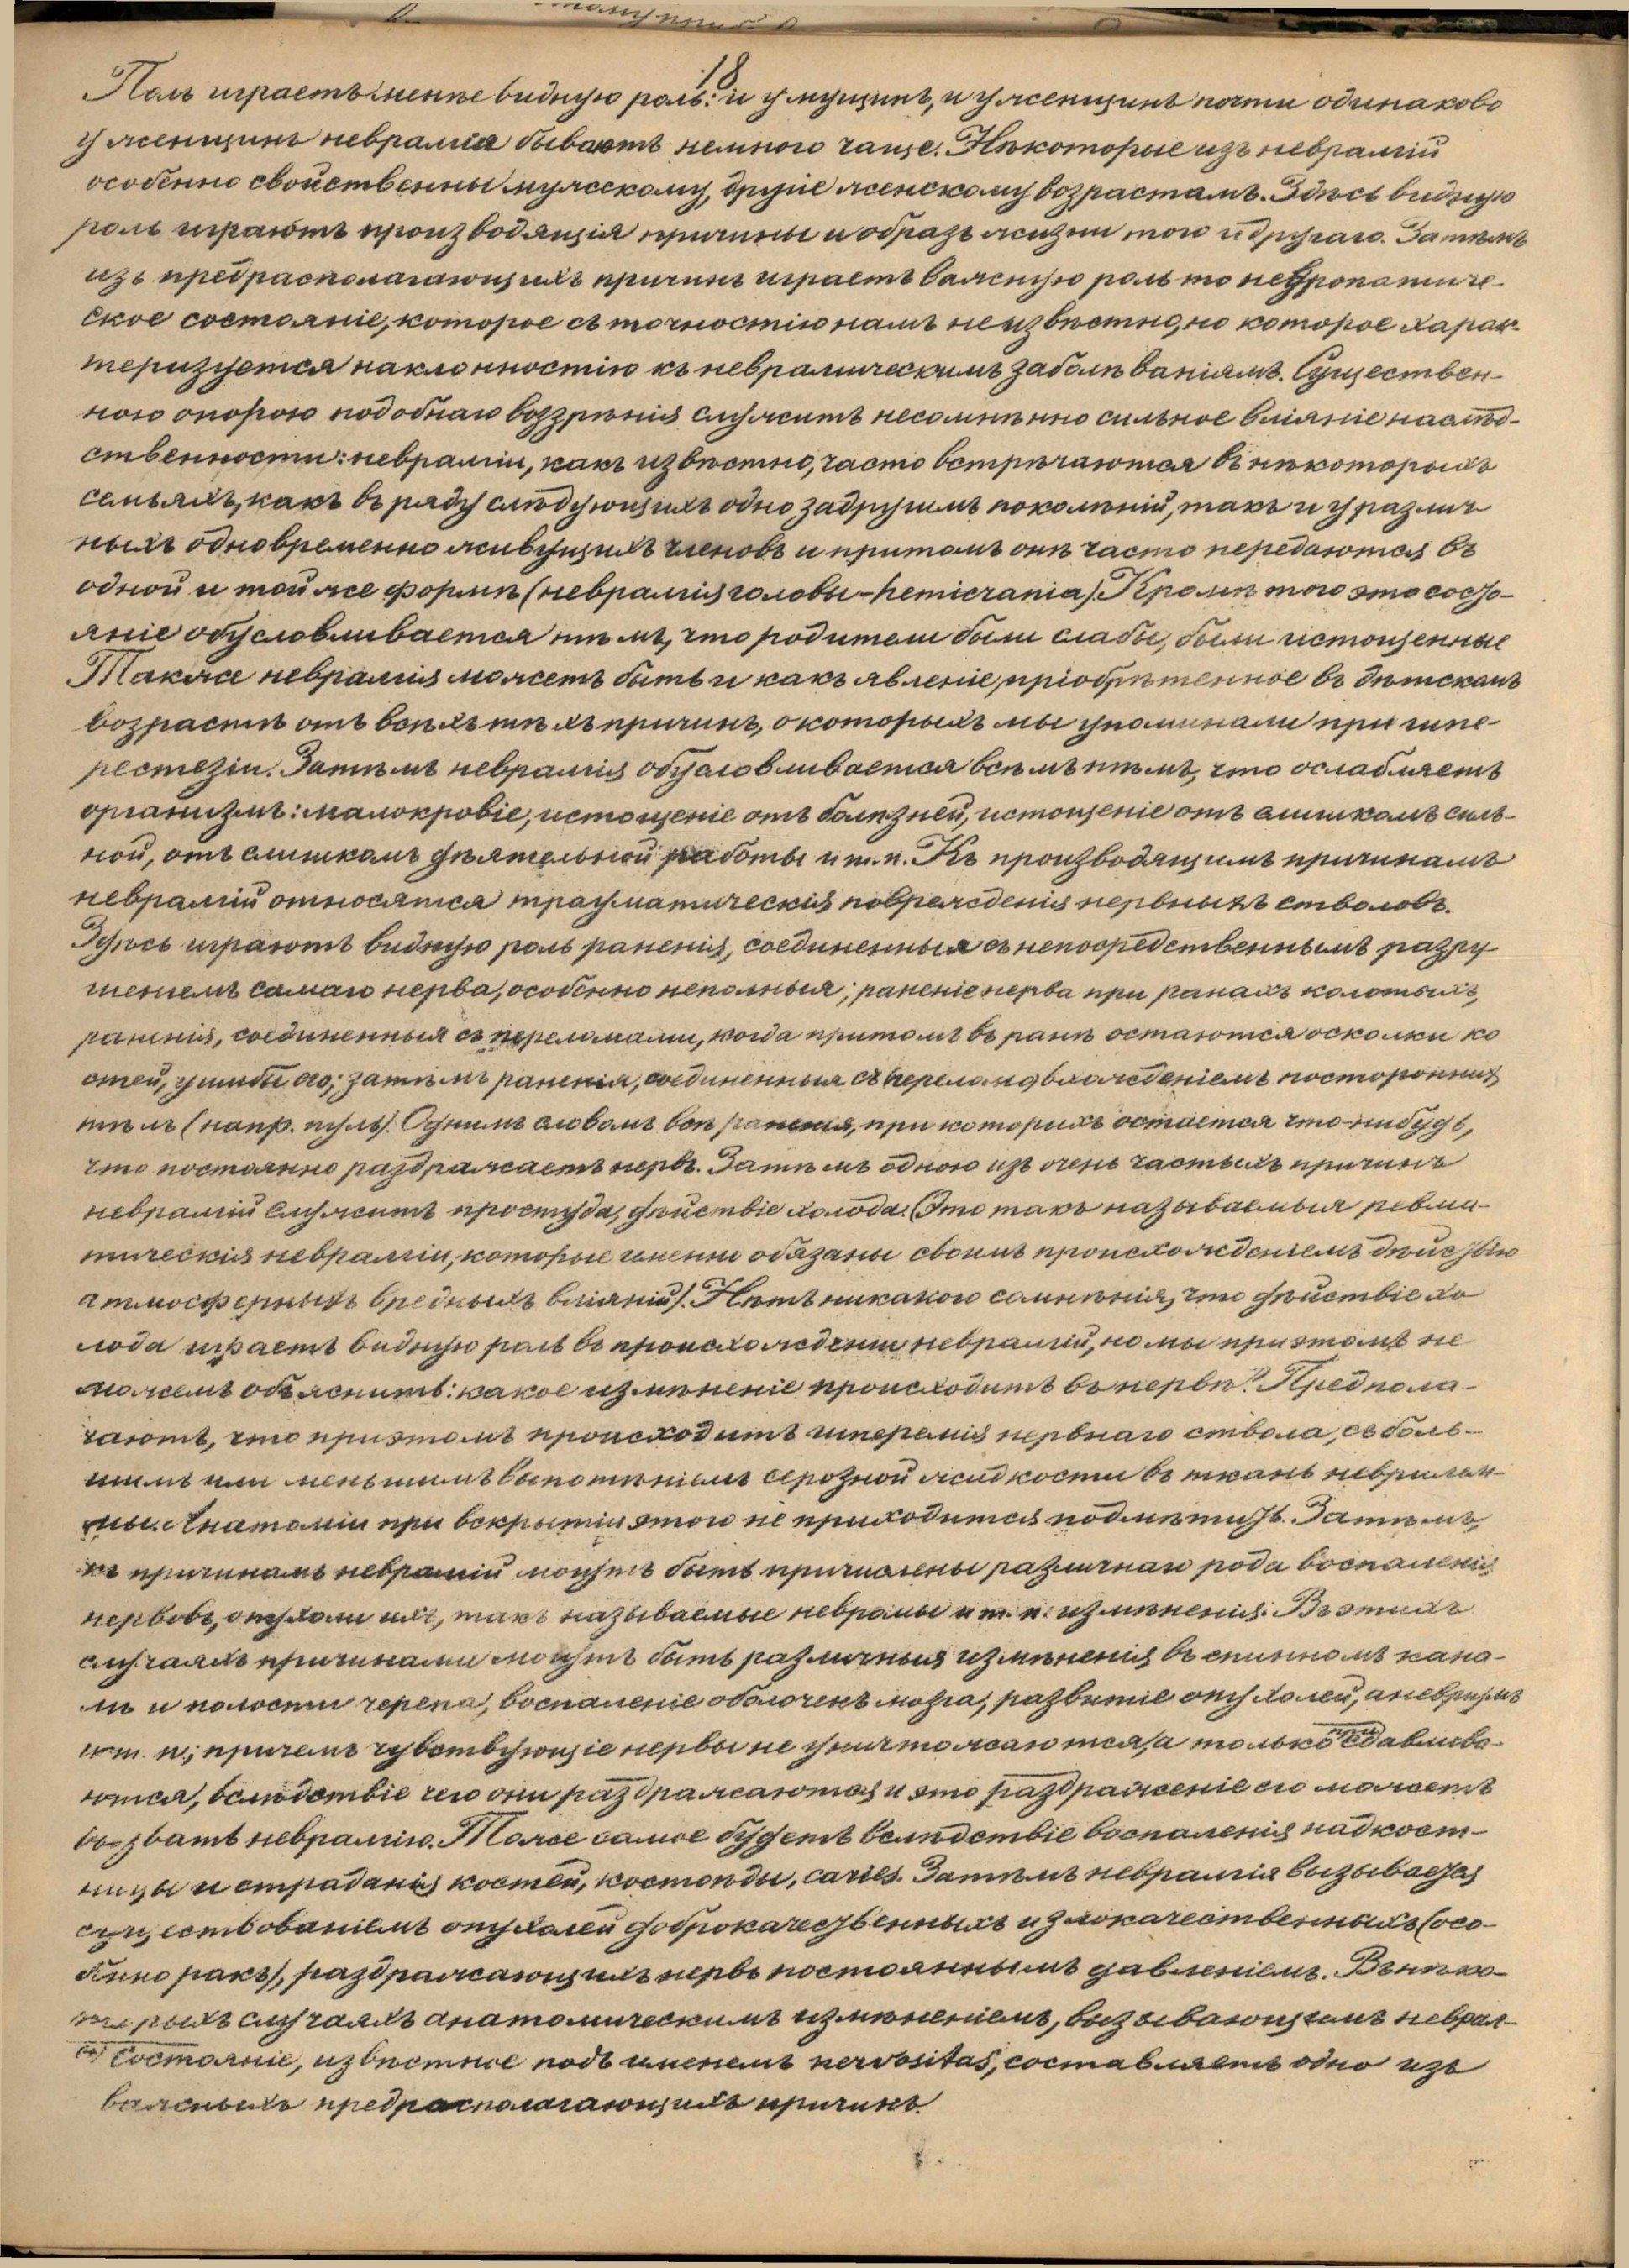 18
Полъ играетъ менѣе видную роль: и у мущинъ, и у женщинъ почти одинаково
у женщинъ невралгія бываетъ немного чаще. Нѣкоторые изъ невралгій
особенно свойственны мужскому, другіе женскому возрастамъ. Здѣсь видную
роль играютъ производящія причины и образъ жизни того и другаго. Затѣмъ
изъ предрасполагающихъ причинъ играетъ важную роль то невропатиче-
ское состояніе, которое съ точностію намъ неизвѣстно, но которое харак-
теризуется наклонностію къ невралгическимъ заболѣваніямъ. Существен-
ною опорою подобнаго воззрѣнія служитъ несомнѣнно сильное вліяніе наслѣд-
ственности: невралгіи, какъ извѣстно, часто встрѣчаются въ нѣкоторыхъ
семьяхъ, какъ въ ряду слѣдующихъ одно за другимъ поколѣній, такъ и у различ
ныхъ одновременно живущихъ членовъ и притомъ онѣ часто передаются въ
одной и той же формѣ (невралгія головы - hemicrania). Кромѣ того это состо-
яніе обусловливается тѣмъ, что родители были слабы, были истощенные
Также невралгія можетъ быть и какъ явленіе, пріобрѣтенное въ дѣтскомъ
возрастѣ отъ всѣхъ тѣхъ причинъ, о которыхъ мы упоминали при гипе-
рестезіи. Затѣмъ невралгія обусловливается всѣмъ тѣмъ, что ослабляетъ
организмъ: малокровіе, истощеніе отъ болѣзней, истощеніе отъ слишкомъ силь-
ной, отъ слишкомъ дѣятельной работы и т. п. Къ производящимъ причинамъ
невралгій относятся травматическія поврежденія нервныхъ стволовъ.
Здѣсь играютъ видную роль раненія, соединенныя съ непосредственнымъ разру
шеніемъ самаго нерва, особенно неполныя; раненіе нерва при ранахъ колотыхъ,
раненія, соединенныя съ переломами, когда притомъ въ ранѣ остаются осколки ко
стей, ушибы его; затѣмъ раненія, соединенныя съ вхожденіемъ постороннихъ
тѣлъ (напр. пуль). Однимъ словомъ всѣ раненія, при которыхъ остается что-нибудь,
что постоянно раздражаетъ нервъ. Затѣмъ одною изъ очень частыхъ причинъ
невралгій служитъ простуда, дѣйствіе холода. (Это такъ называемыя ревма-
тическія невралгіи, которые именно обязаны своимъ происхожденіемъ дѣйствію
атмосферныхъ вредныхъ вліяній). Нѣтъ никакого сомнѣнія, что дѣйствіе хо
лода играетъ видную роль въ происхожденіи невралгій, но мы при этомъ не
можемъ объяснить: какое измѣненіе происходитъ въ нервѣ? Предпола-
гаютъ, что при этомъ происходитъ гиперемія нервнаго ствола, съ боль-
шимъ или меньшимъ выпотѣніемъ серозной жидкости въ ткань неврилем-
мы. Анатоміи при вскрытіи этого не приходится подмѣтить. Затѣмъ,
къ причинамъ невралгій могутъ быть причислены различнаго рода воспаленія
нервовъ, опухоли ихъ, такъ называемые невромы и т. п. измѣненія. Въ этихъ
случаяхъ причинами могутъ быть различныя измѣненія въ спинномъ кана-
лѣ и полости черепа, воспаленіе оболочекъ мозга, развитіе опухолей, аневризмъ
и т. п; причемъ чувствующіе нервы не уничтожаются, а только придавлива-
ются, вслѣдствіе чего они раздражаются и это раздраженіе его можетъ
вызвать невралгію. Тоже самое будетъ вслѣдствіе воспаленія надкост-
ницы и страданія костей, костоѣды, caries. Затѣмъ невралгія вызывается
существованіемъ опухолей доброкачественныхъ и злокачественныхъ (осо-
бенно ракъ), раздражающихъ нервъ постояннымъ давленіемъ. Въ нѣко-
торыхъ случаяхъ анатомическимъ измѣненіемъ, вызывающимъ неврал-
Состояніе, извѣстное подъ именемъ nervositas, составляетъ одно изъ
важныхъ предрасполагающихъ причинъ.